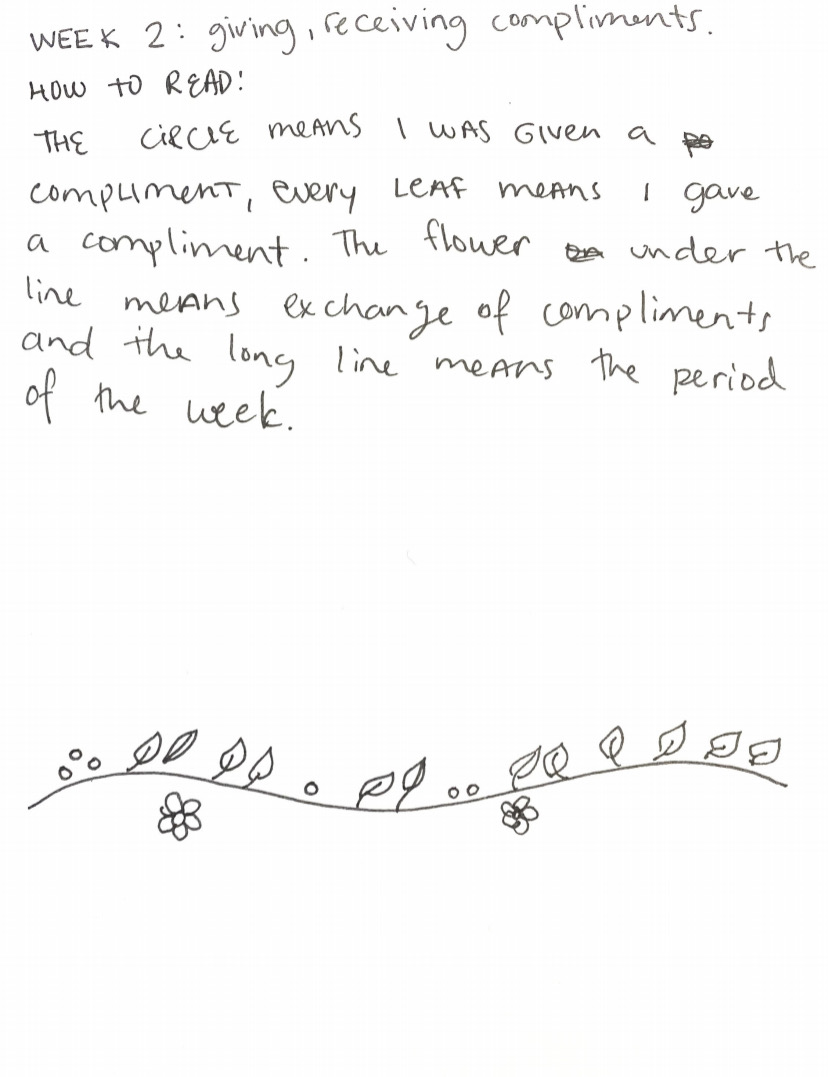 WEEK 2: giving, receiving compliments.
HOW TO READ!
THE CIRCLE meANS I WAS GIVEN a
COMPLIMENT, every LEAF meANS I gave
a compliment. The flower under the
line meANS exchange of compliments
and the long line meANS the period
of the week.